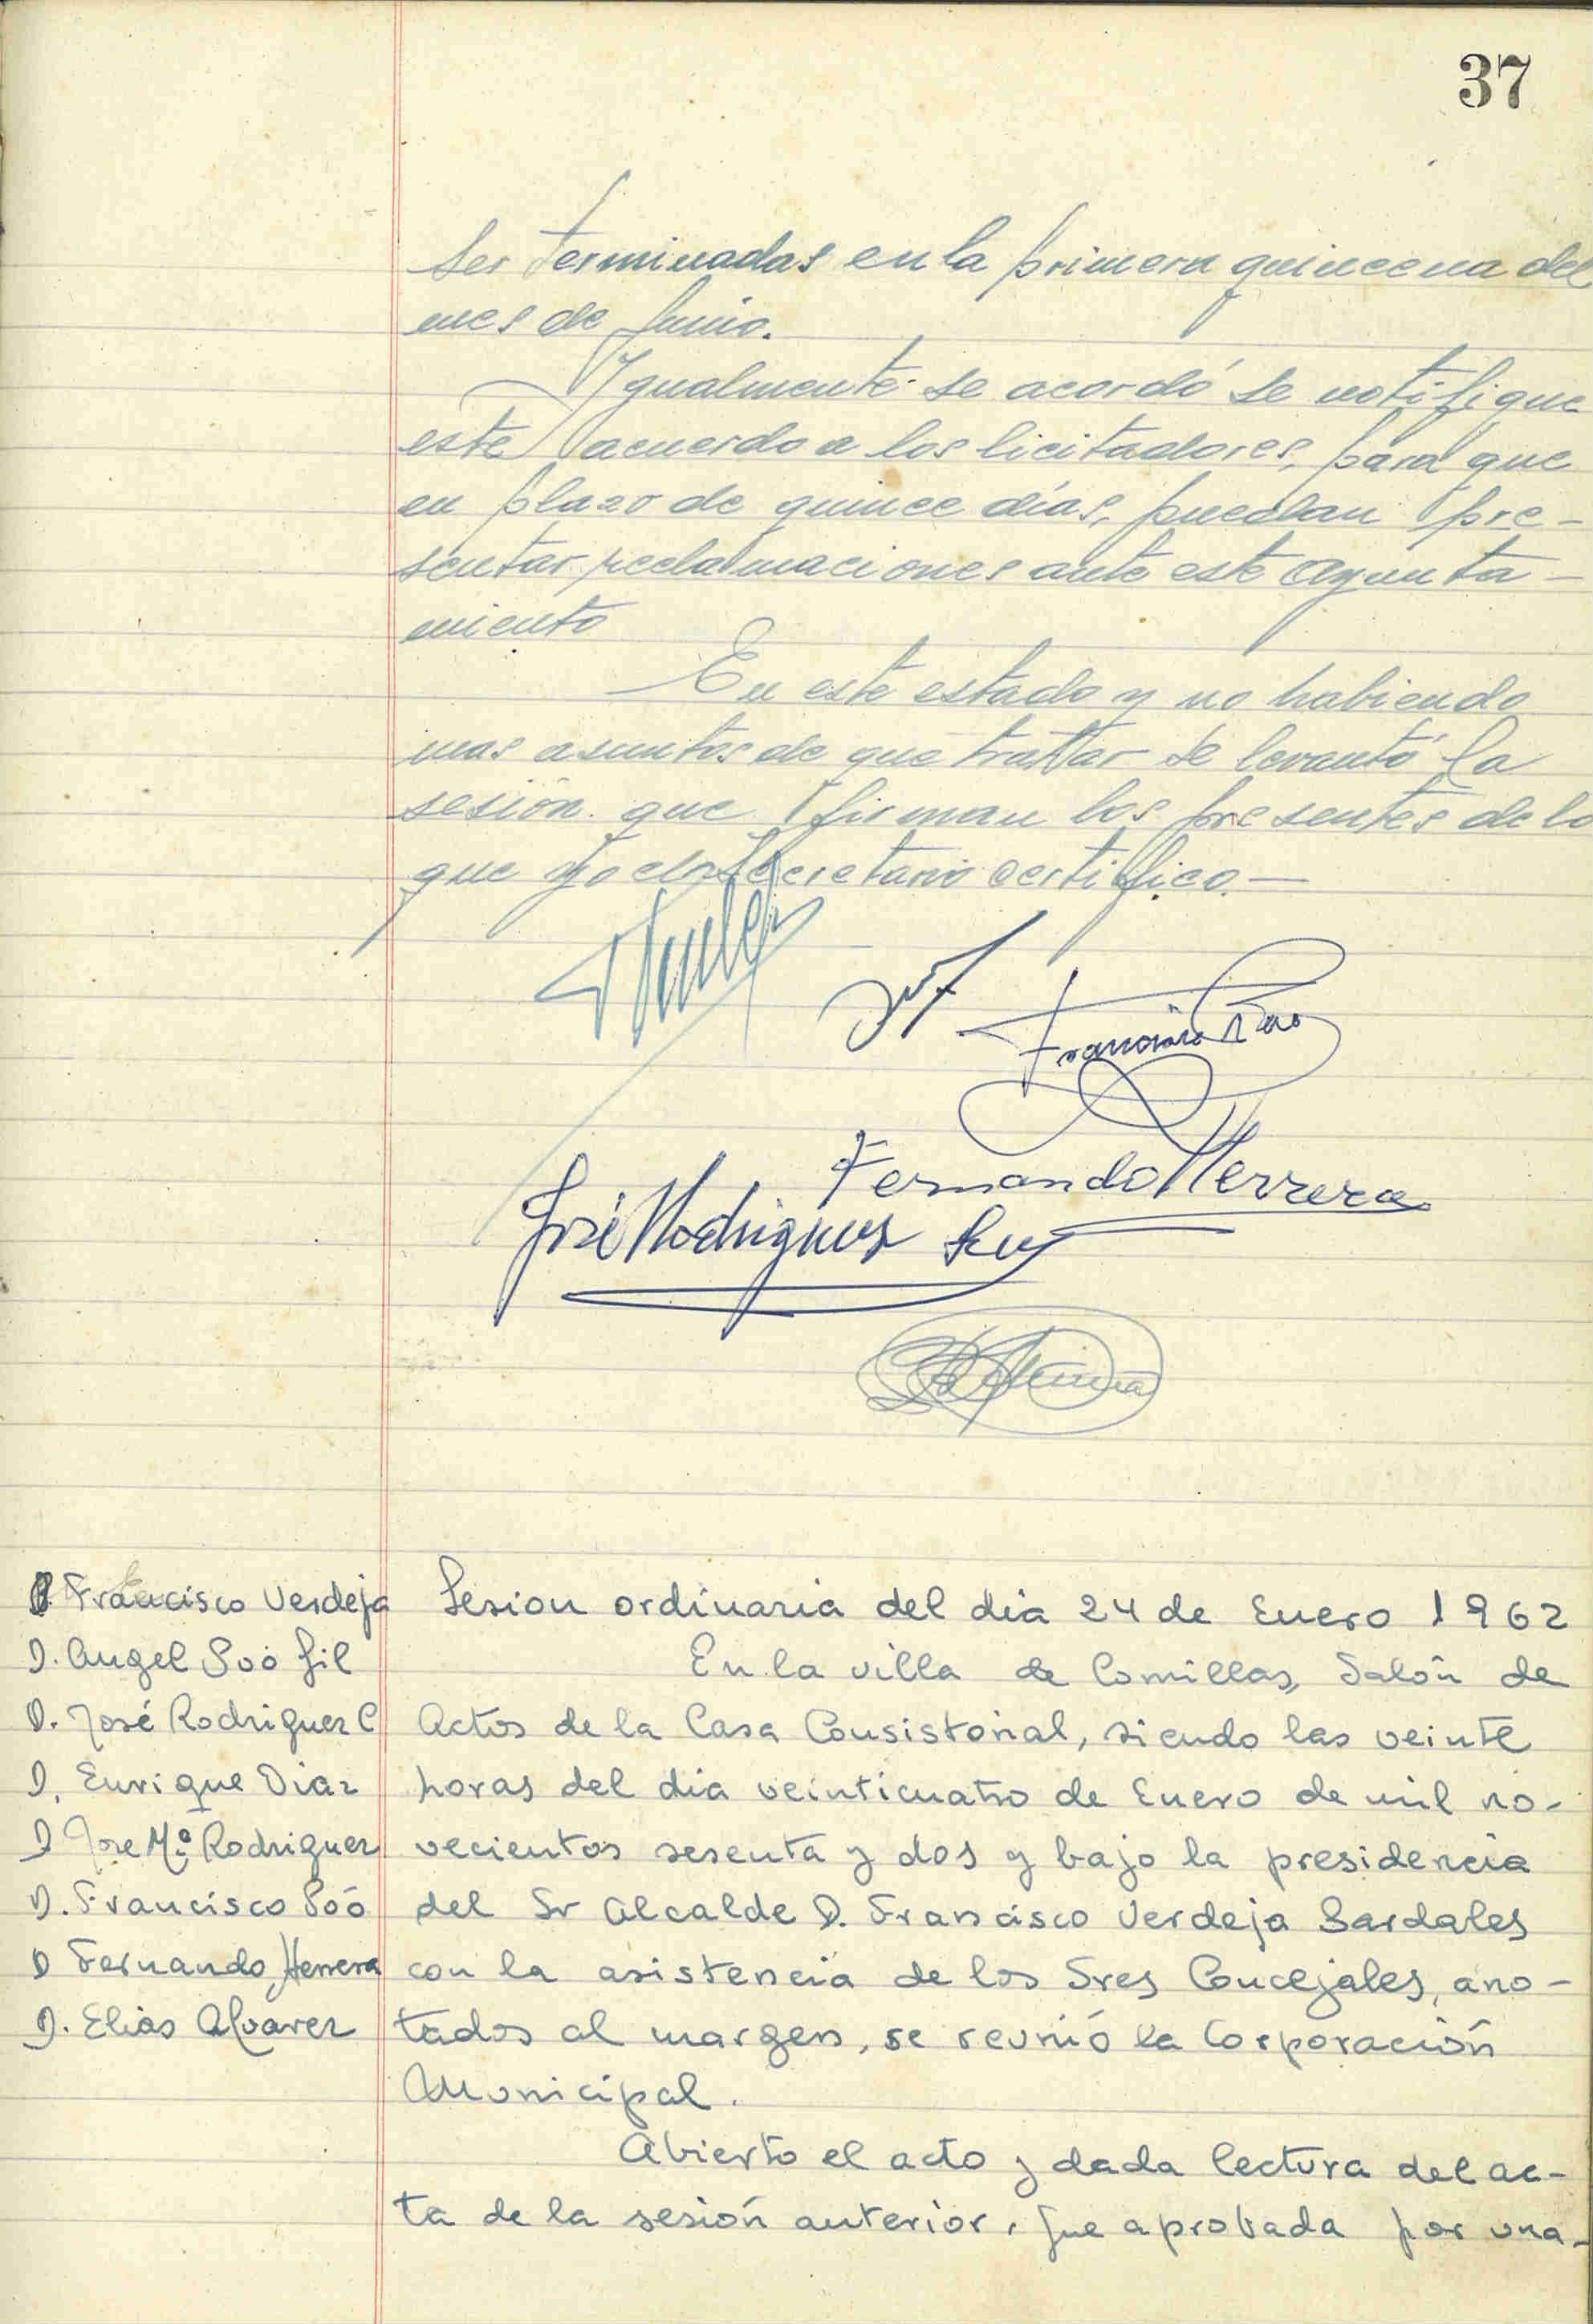 37
ser terminadas en la primera quincena del
mes de Junio.
Igualmente se acordó se notifique
este acuerdo a los licitadores, para que
en plazo de quince días, puedan pre-
sentar reclamaciones ante este Ayunta-
miento
En este estado y no habiendo
mas asuntos de que tratar se levantó la
sesión que firman los presentes de lo
que yo el Secretario certifico.—
Francisco Poo
Fernando Herrera
José Rodriguez
D. Francisco Verdeja
D. Angel Poo Gil
D. José Rodriguez C
D. Enrique Diaz
D Jose Mª Rodriguez
D. Francisco Poó
D Fernando Herrera
D. Elias Alvarez
Sesion ordinaria del dia 24 de Enero 1962
En la villa de Comillas, Salón de
Actos de la Casa Consistorial, siendo las veinte
horas del dia veinticuatro de Enero de mil no-
vecientos sesenta y dos y bajo la presidencia
del Sr Alcalde D. Francisco Verdeja Bardales
con la asistencia de los Sres Concejales, ano-
tados al margen, se reunió la Corporación
Municipal.
Abierto el acto y dada lectura del ac-
ta de la sesión anterior, fue aprobada por una-